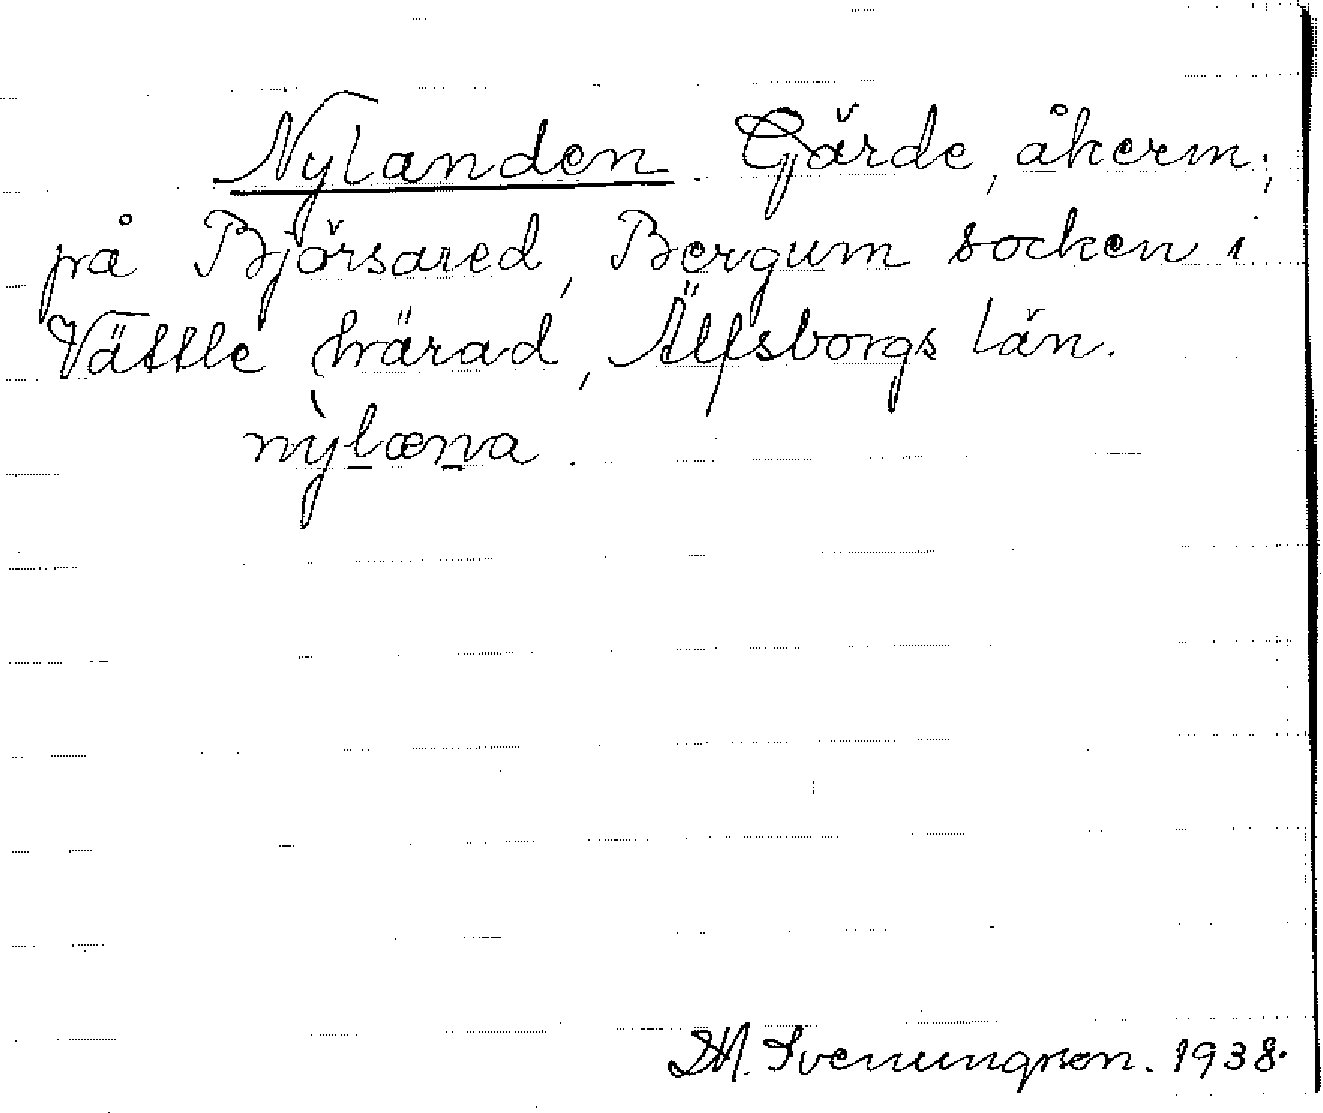 Nylanden. Gärde, åkerm;
på Björsared, Bergum socken i
Vättle härad, Älfsborgs län.
nỳlæna.
M. Svenungson. 1938.